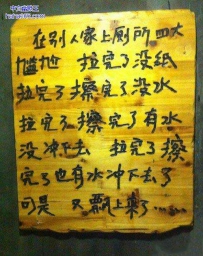 在别人家上厕所四大
尴尬 拉完了没纸
拉完了擦完了没水
拉完了擦完了有水
没冲下去 拉完了擦
完了也有水冲下去了
可是 又飘上来了……